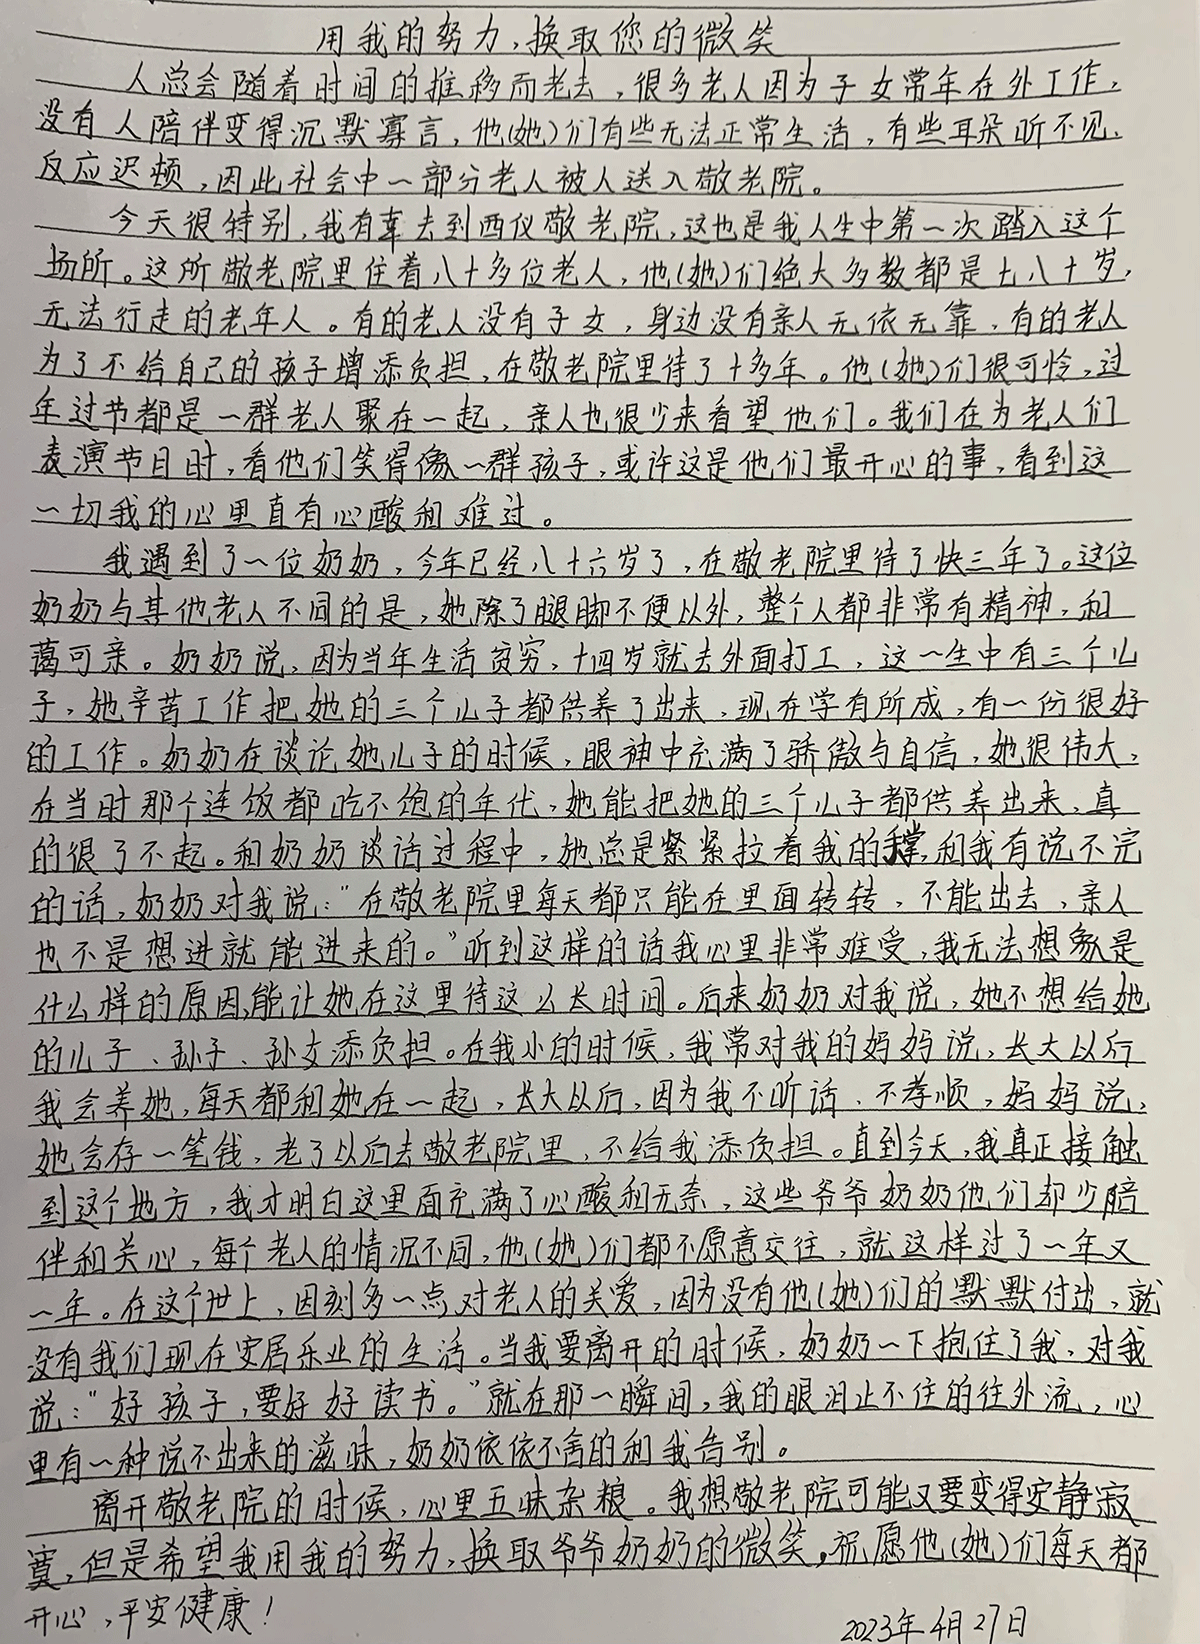 用我的努力,换取您的微笑
人总会随着时间的推移而老去,很多老人因为子女常年在外工作,
没有人陪伴变得沉默寡言,他(她)们有些无法正常生活,有些耳朵听不见、
反应迟顿,因此社会中一部分老人被人送入敬老院。
今天很特别,我有幸去到西仪敬老院,这也是我人生中第一次踏入这个
场所。这所敬老院里住着八十多位老人,他(她)们绝大多数都是七八十岁,
无法行走的老年人。有的老人没有子女,身边没有亲人无依无靠,有的老人
为了不给自己的孩子增添负担,在敬老院里待了十多年。他(她)们很可怜,过
年过节都是一群老人聚在一起,亲人也很少来看望他们。我们在为老人们
表演节目时,看他们笑得像一群孩子,或许这是他们最开心的事,看到这
一切我的心里直有心酸和难过。
我遇到了一位奶奶,今年已经八十六岁了,在敬老院里待了快三年了。这位
奶奶与其他老人不同的是,她除了腿脚不便以外,整个人都非常有精神,和
蔼可亲。奶奶说,因为当年生活贫穷,十四岁就去外面打工,这一生中有三个儿
子,她辛苦工作把她的三个儿子都供养了出来,现在学有所成,有一份很好
的工作。奶奶在谈论她儿子的时候,眼神中充满了骄傲与自信,她很伟大,
在当时那个连饭都吃不饱的年代,她能把她的三个儿子都供养出来,真
的很了不起。和奶奶谈话过程中,她总是紧紧拉着我的手掌,和我有说不完
的话,奶奶对我说:"在敬老院里每天都只能在里面转转,不能出去,亲人
也不是想进就能进来的。"听到这样的话我心里非常难受,我无法想象是
什么样的原因,能让她在这里待这么长时间。后来奶奶对我说,她不想给她
的儿子、孙子、孙女添负担。在我小的时候,我常对我的妈妈说,长大以后
我会养她,每天都和她在一起,长大以后,因为我不听话、不孝顺,妈妈说,
她会存一笔钱,老了以后去敬老院里,不给我添负担。直到今天,我真正接触
到这个地方,我才明白这里面充满了心酸和无奈,这些爷爷奶奶他们却少陪
伴和关心,每个老人的情况不同,他(她)们都不愿意交往,就这样过了一年又
一年。在这个世上,因刻多一点对老人的关爱,因为没有他(她)们的默默付出,就
没有我们现在安居乐业的生活。当我要离开的时候,奶奶一下抱住了我,对我
说:"好孩子,要好好读书。"就在那一瞬间,我的眼泪止不住的往外流,心
里有一种说不出来的滋味,奶奶依依不舍的和我告别。
离开敬老院的时候,心里五味杂粮。我想敬老院可能又要变得安静寂
寞,但是希望我用我的努力,换取爷爷奶奶的微笑,祝愿他(她)们每天都
开心,平安健康!
2023年4月27日